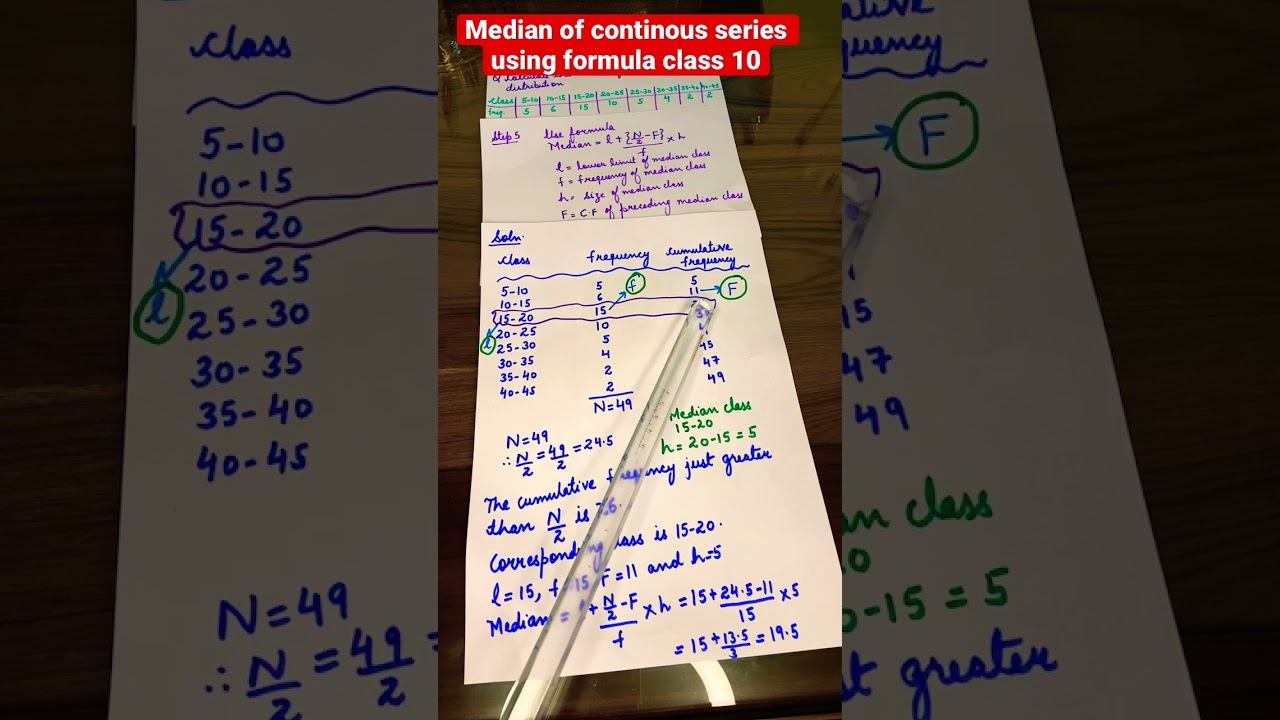 Median of continous series
using formula class 10
distribution
Class 5-10 10-15 15-20 20-25 25-30 30-35 35-40 40-45
freq. 5 6 15 10 5 4 2 2
Step 5 Use formula
Median = l + {N/2 - F}/f × h
l = lower limit of median class
f = frequency of median class
h = size of median class
F = C.F of preceding median class
Soln.
class frequency cumulative frequency
5-10 5 5
10-15 6 11
15-20 15
20-25 10
25-30 5
30-35 4 45
35-40 2 47
40-45 2 49
N=49
f
F
l
Median class
15-20
h = 20-15 = 5
N=49
∴ N/2 = 49/2 = 24.5
The cumulative frequency just greater
than N/2 is 26.
Corresponding class is 15-20.
l = 15, f=15, F=11 and h=5
Median = l + N/2 - F/f × h = 15 + 24.5-11/15 × 5
= 15 + 13.5/3 = 19.5
Class
5-10
10-15
15-20
20-25
25-30
30-35
35-40
40-45
l
N=49
∴ N/2 = 49/2 =
F
15
47
49
an class
0-15 = 5
st greater